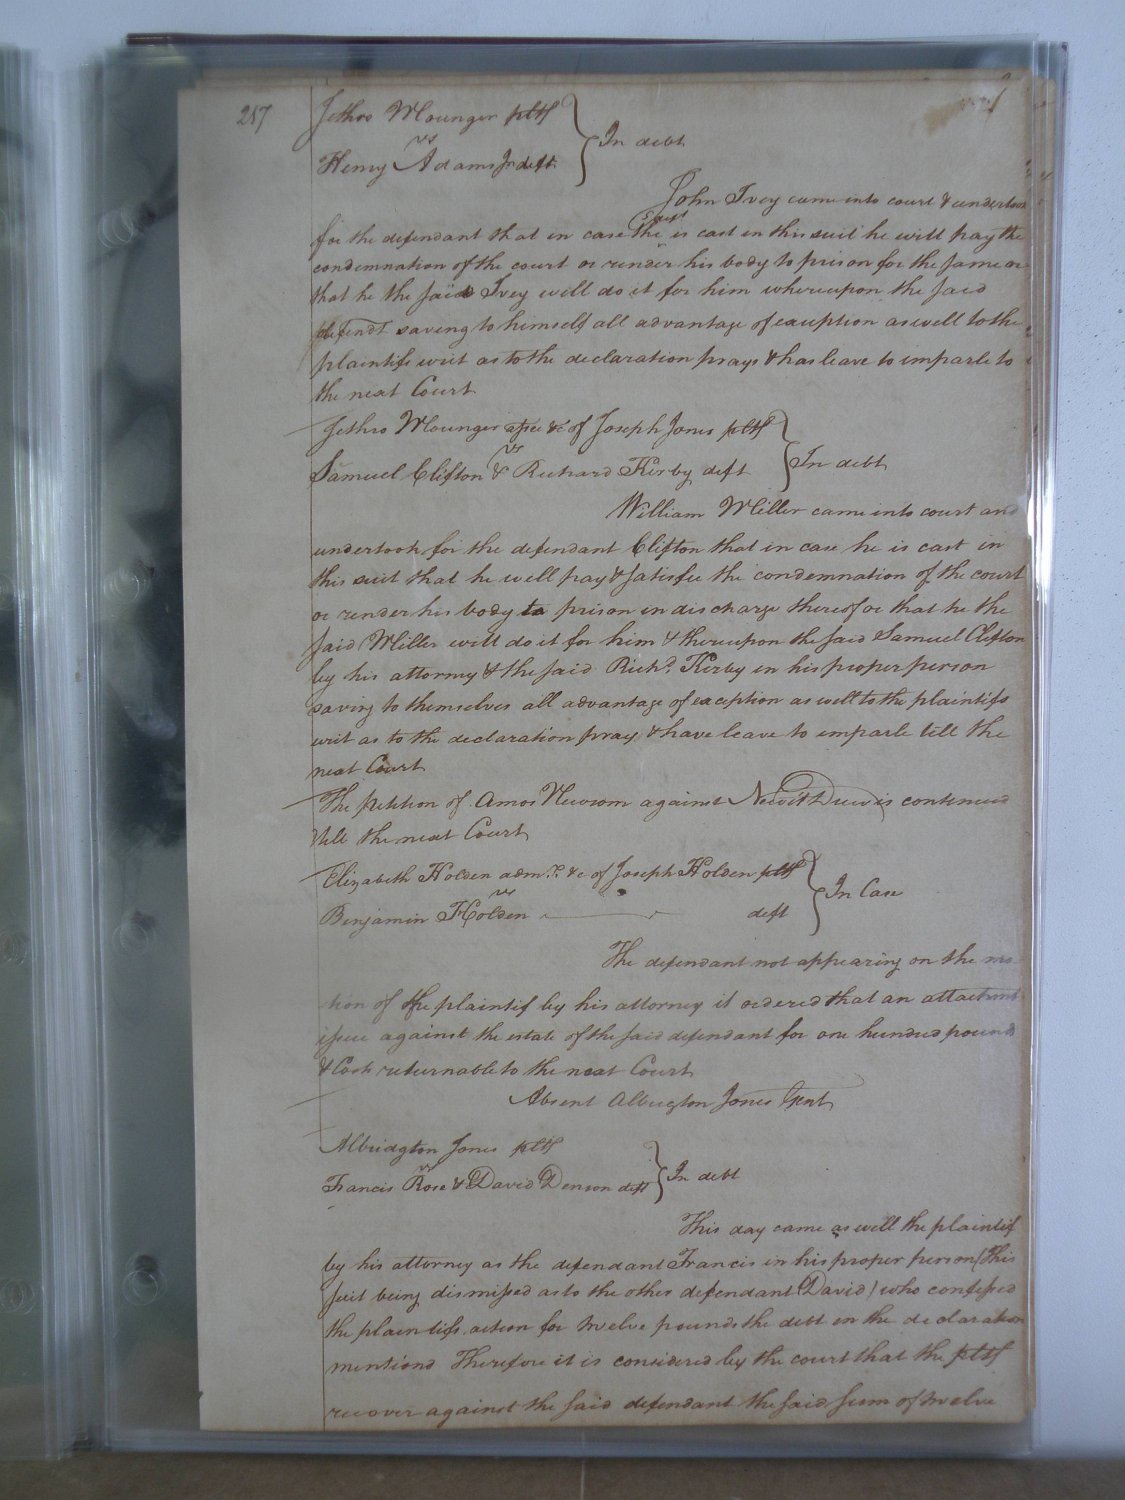 287
Jethro Mounger pltf
vs
Henry Adams Jr deft
In debt
John Ivey came into court & undertook
for the defendant that in case the deft is cast in this suit he will pay the
condemnation of the court or render his body to prison for the same or
that he the said Ivey will do it for him whereupon the said
defendt saving to himself all advantage of exception as well to the
plaintifs writ as to the declaration prays & has leave to imparle to
the next Court
Jethro Mounger assee &c of Joseph Jones pltf
vs
Samuel Clifton & Richard Kirby deft
In debt
William Miller came into court and
undertook for the defendant Clifton that in case he is cast in
this suit that he will pay & satisfie the condemnation of the court
or render his body to prison in discharge thereof or that he the
said Miller will do it for him & thereupon the said Samuel Clifton
by his attorney & the said Richd. Kirby in his proper person
saving to themselves all advantage of exception as well to the plaintifs
writ as to the declaration pray & have leave to imparle till the
next Court
The petition of Amos Newsom against Newit Drew is continued
till the next Court
Elizabeth Holden admx. &c of Joseph Holden pltf
vs
Benjamin Holden deft
In Case
The defendant not appearing on the mo
tion of the plaintif by his attorney it ordered that an attachment
issue against the estate of the said defendant for one hundred pounds
& Costs returnable to the next Court
Absent Albrigton Jones Gent
Albridgton Jones pltf
vs
Francis Rose & David Denson deft
In debt
This day came as well the plaintif
by his attorney as the defendant Francis in his proper person (This
suit being dismissed as to the other defendant David) who confessed
the plaintifs action for twelve pounds the debt in the declaration
mentiond Therefore it is considered by the court that the pltf
recover against the said defendant the said sum of twelve